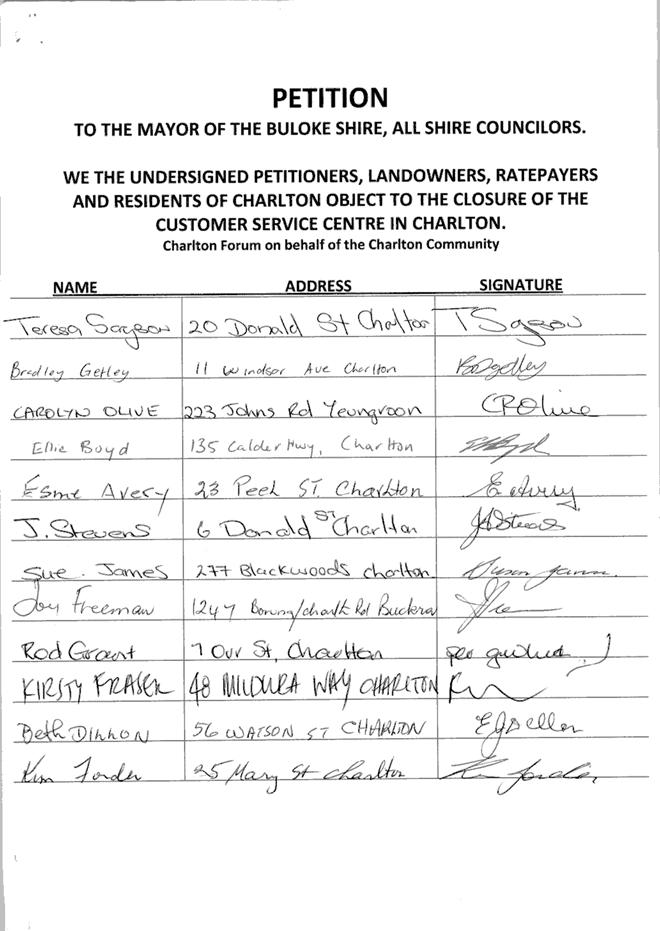 PETITION
TO THE MAYOR OF THE BULOKE SHIRE, ALL SHIRE COUNCILORS.
WE THE UNDERSIGNED PETITIONERS, LANDOWNERS, RATEPAYERS
AND RESIDENTS OF CHARLTON OBJECT TO THE CLOSURE OF THE
CUSTOMER SERVICE CENTRE IN CHARLTON.
Charlton Forum on behalf of the Charlton Community
NAME ADDRESS SIGNATURE
Teresa 20 Donald St Charlton T
Bradley Getley 11 Windsor Ave Charlton
CAROLYN OLIVE 223 Johns Rd Yeungroon CROlive
Ellie Boyd 135 Calder Hwy, Charlton
Esme Avery 23 Peel ST. Charlton E Avery
J. Stevens 6 Donald ST Charlton
Sue. James 277 Blackwoods charlton. Susan James.
Joy Freeman 1247
Rod Grant St, Charlton
KIRSTY FRASER 48 MILDURA WAY CHARLTON
Beth 56 WATSON ST CHARLTON
Kim Forder 25 Mary St Charlton